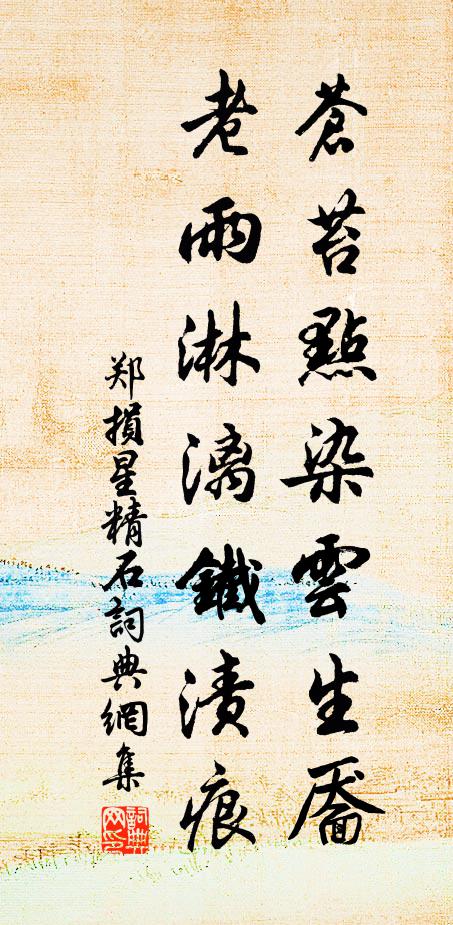 蒼苔點染雲生靥
老雨淋漓鐵漬痕
郑損星精石詞典網集
詞典
网印